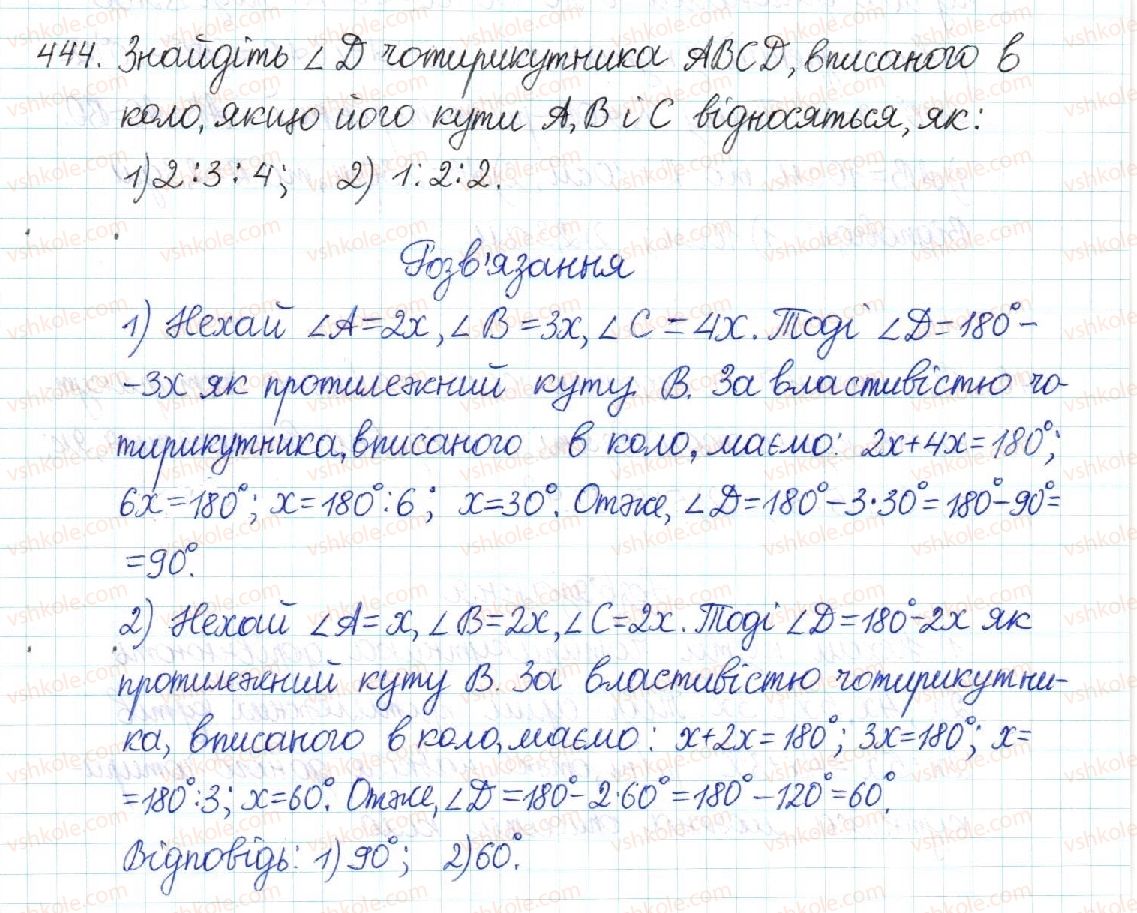 444. Знайдіть ∠D чотирикутника ABCD, вписаного в
коло, якщо його кути A, B і C відносяться, як:
1) 2 : 3 : 4; 2) 1 : 2 : 2.
Розв'язання
1) Нехай ∠A = 2x, ∠B = 3x, ∠C = 4x. Тоді ∠D = 180° –
– 3x як протилежний куту B. За властивістю чо-
тирикутника, вписаного в коло, маємо: 2x + 4x = 180°;
6x = 180°; x = 180° : 6; x = 30°. Отже, ∠D = 180° – 3 · 30° = 180° – 90° =
= 90°.
2) Нехай ∠A = x, ∠B = 2x, ∠C = 2x. Тоді ∠D = 180° – 2x як
протилежний куту B. За властивістю чотирикутни-
ка, вписаного в коло, маємо: x + 2x = 180°; 3x = 180°; x =
= 180° : 3; x = 60°. Отже, ∠D = 180° – 2 · 60° = 180° – 120° = 60°.
Відповідь: 1) 90°; 2) 60°.